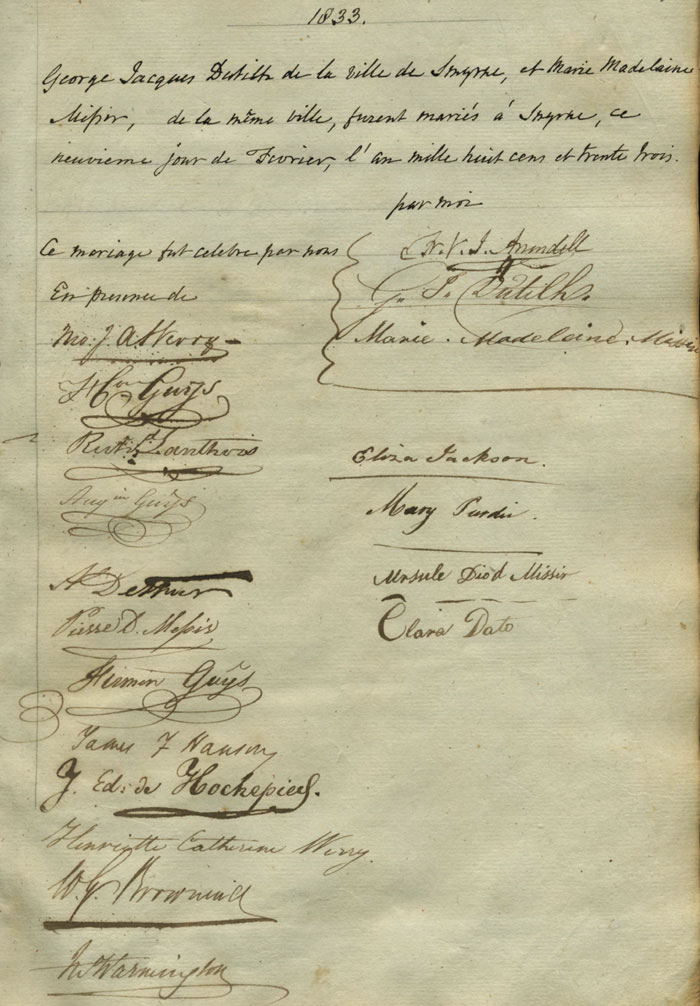 1833.
George Jacques Dutilh de la ville de Smyrne, et Marie Madelaine
Missir, de la même ville, furent mariés à Smyrne, ce
neuvieme jour de Fevrier, l'an mille huit cens et trente trois.
par moi
Ce mariage fut celebre par nous
F. V. J. Arundell
G. J. Dutilh.
Marie Madelaine Missir
En presence de
Guÿs
Guÿs
Pierre D. Missir
Firmin Guÿs
James F Hanson
J. Ed: de Hochepied.
Henriette Catherine Werry.
Warmington
Eliza Jackson.
Mary Purdie.
Ursule Diod Missir
Clara Dato